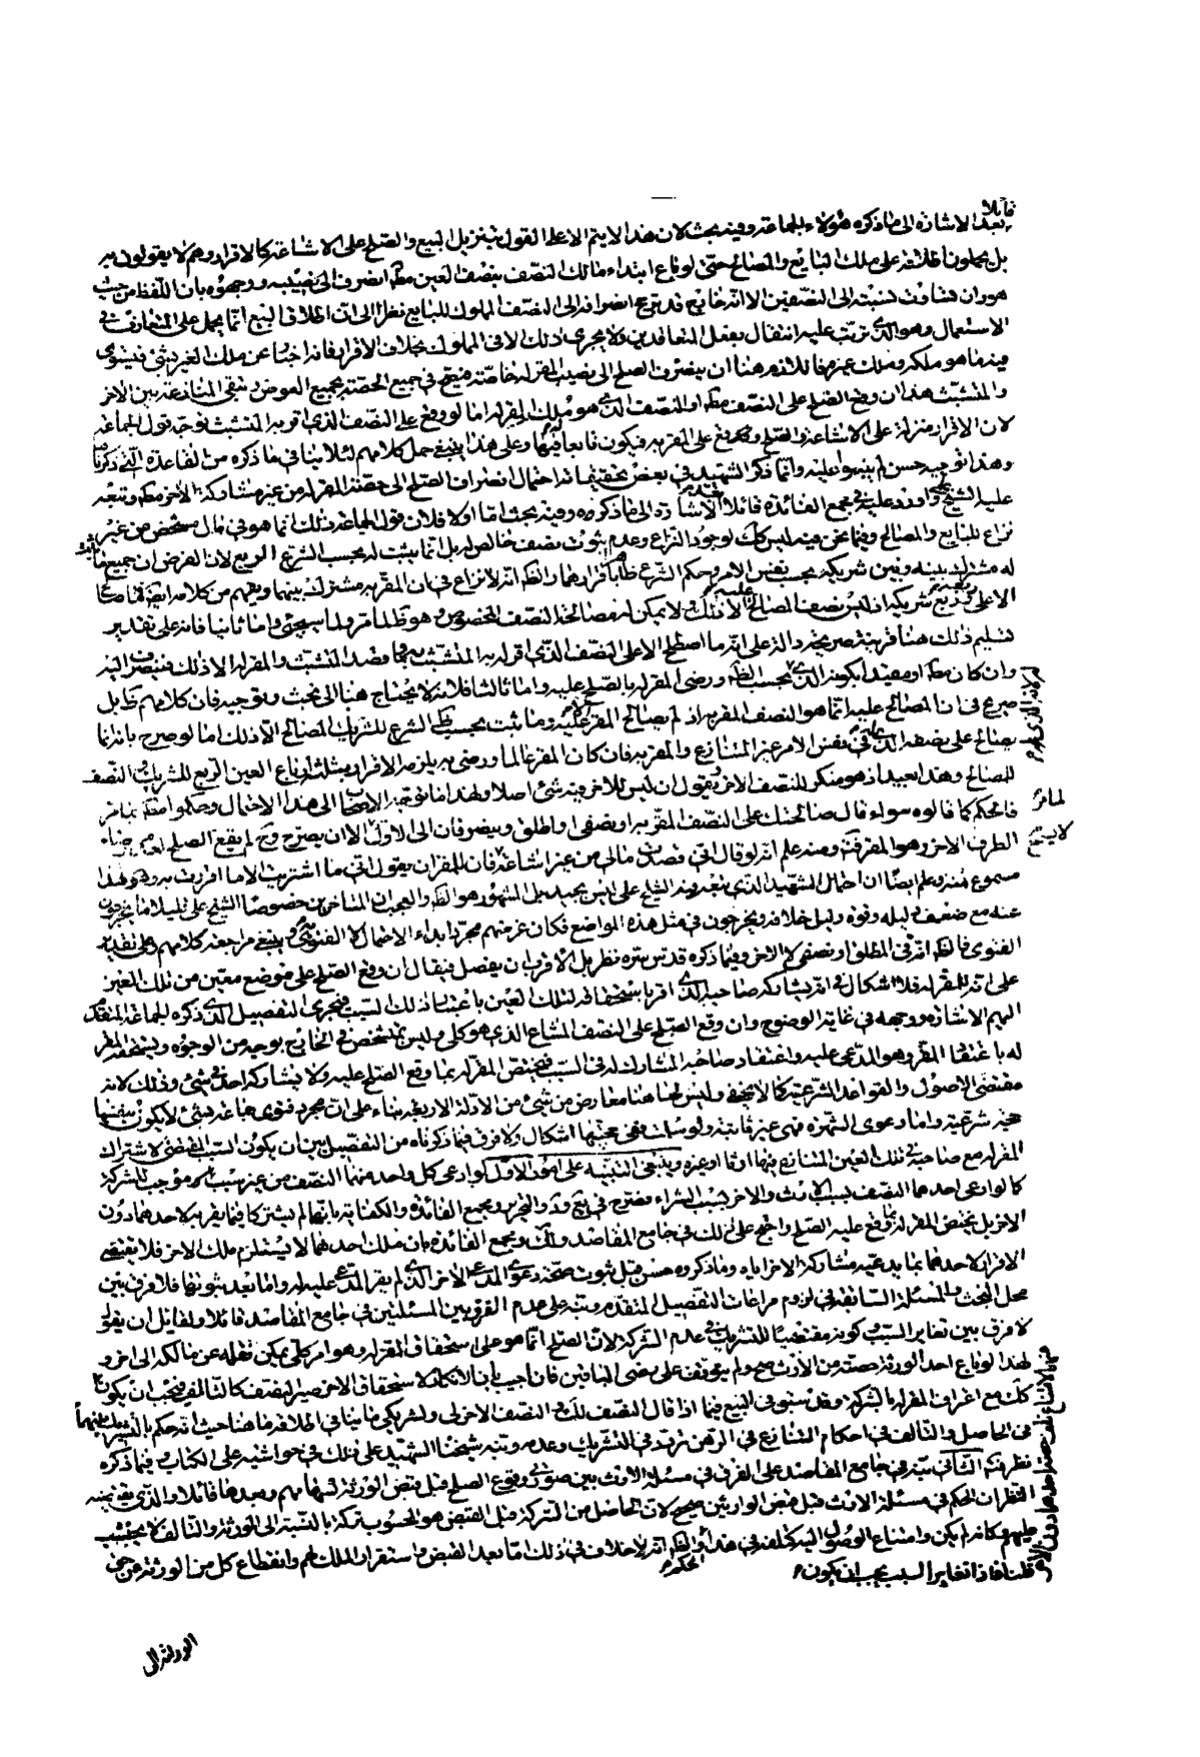 قائلا
بعد الاشاره الى ما ذكره هؤلاء الجماعة وفيه بحث لان هذا لا يتم الا على القول بتنزيل البيع والصلح على الاشاعة كالاقرار وهم لا يقولون به
بل يحملون اطلاقه على ملك البايع والمصالح حتى لو باع ابتداء مالك النصف نصف العين مطلقا انصرف الى نصيبه ووجهوه بان اللفظ من حيث
هو وان تساوت نسبته الى النصفين الا انه من خارج قد ترجح انصرافه الى النصف المملوك للبايع نظرا الى ان اطلاق البيع انما يحمل على المتعارف في
الاستعمال وهو الذي يترتب عليه انتقال بفعل المتعاقدين ولا يجري ذلك الا في المملوك بخلاف الاقرار فانه اخبار عن ملك الغير بشئ فيستوي
فيه ما هو ملكه وملك غيره فاللازم هنا ان ينصرف الصلح الى نصيب المقر له خاصة فيصح في جميع الحصة بجميع العوض وتبقى المنازعة بين الاخر
والمتشبث هذا ان وقع الصلح على النصف مطلقا او النصف الذي هو ملك المقر له اما لو وقع على النصف الذي اقر به المتشبث توجه قول الجماعة
لان الاقرار منزل على الاشاعة والصلح وقع على المقر به فيكون تابعا فيها وعلى هذا ينبغي حمل كلامهم لئلا ينافي ما ذكره من القاعدة التي ذكرناها
وهذا توجيه حسن لم ينبهوا عليه وانما ذكر الشهيد في بعض تحقيقاته احتمال انصراف الصلح الى حصة المقر له من غير مشاركة الاخر مطلقا وتبعه
عليه الشيخ علي واورد عليه في مجمع الفائدة قائلا الاشارة الى ما ذكروه وفيه بحث اما اولا فلان قول الجماعة ذلك انما هو في مال مشخص من غير
نزاع للبايع والمصالح وفيما نحن فيه ليس كك لوجود النزاع وعدم ثبوت نصف خالص له بل انما يثبت له بحسب الشرع الربع لان الفرض ان جميع ما يثبت
له مشترك بينه وبين شريكه بحسب نفس الامر وحكم الشرع ظاهرا باقرارهما والظاهر انه لا نزاع في ان المقر به مشترك بينهما
الا على ربع شريكه اذ ليس نصف المصالح عليه الا ذلك ولا يمكن له مصالحة النصف المخصوص وهو ظاهر لما مر ولما سيجئ واما ثانيا فانه على تقدير
تسليم ذلك هنا قرينة صريحة دالة على انه ما اصطلح الا على النصف الذي اقر له به المتشبث وما قصد المتشبث والمقر له الا ذلك فينصرف اليه
وان كان مطلقا او مقيدا بكونه الذي له بحسب الظاهر ورضى المقر له بالصلح عليه واما ثالثا فلانه لا يحتاج هنا الى بحث وتوجيه فان كلامهم ظاهر بل
صريح في ان المصالح عليه انما هو النصف المقر به اذ لم يصالح المقر عليه الا وما ثبت بحسب ظاهر الشرع للشريك المصالح الا ذلك اما لو صرح بانه انما
يصالح على نصفه الذي له في نفس الامر غير المتنازع والمقر به فان كان المقر عالما ورضى به يلزمه الاقرار بثلثة ارباع العين الربع للشريك والنصف
للمصالح وهذا بعيد اذ هو منكر للنصف الاخر ويقول ان ليس للاخر فيه شئ اصلا
فالحكم كما قالوه سواء قال صالحتك على النصف المقر به او نصفي او اطلق وينصرفان الى الاول الا ان يصرح وح لم يقع الصلح لعدم رضاء
الطرف الاخر وهو المقر فتأمل ومنه علم انه لو قال اني قصدت مالي من غير اشاعة فان للمقر ان يقول اني ما اشتريت الا ما اقررت به وهو
مسموع منه وعلم ايضا ان احتمال الشهيد الذي تبعه فيه الشيخ علي ليس بجيد بل المشهور هو الظاهر والعجب ان المتاخرين خصوصا الشيخ علي قليلا ما يخرجون
عنه مع ضعف دليله وقوة دليل خلافه ويخرجون في مثل هذه المواضع فكان غرضهم مجرد ابداء الاحتمال لا الفتوى وينبغي مراجعة كلامهم وعلى تقدير
الفتوى فالظاهر انه في المطلق او نصفي لا الاخر وفيما ذكره قدس سره نظر بل الاقرب ان يفصل فيقال ان وقع الصلح على موضع معين من تلك العين
على انه للمقر له فلا اشكال في انه يشاركه صاحبه الذي اقر باستحقاقه لتلك العين باعتبار ذلك السبب فيجري التفصيل الذي ذكره الجماعة المتقدم
اليهم الاشاره ووجهه في غاية الوضوح وان وقع الصلح على النصف المشاع الذي هو كلي وليس بمتشخص في الخارج بوجه من الوجوه ويستحقه المقر
له باعتقاد المقر وهو المدعى عليه واعتقاد صاحبه المشارك له في السبب فيختص المقر له بما وقع الصلح عليه ولا يشاركه احد في شئ وذلك لانه
مقتضى الاصول والقواعد الشرعية كما لا يخفى وليس لها هنا معارض من شئ من الادلة الاربعة بناء على ان مجرد فتوى جماعة بشئ لا يكون بنفسها
حجة شرعية واما دعوى الشهرة فهي غير ثابتة ولو سلمت ففي حجيتها اشكال ولا فرق فيما ذكرناه من التفصيل بين ان يكون السبب المقتضي لاشتراك
المقر له مع صاحبه في تلك العين المتنازع فيها ارثا او غيره وينبغي التنبيه على امور الاول لو ادعى كل واحد منهما النصف من غير سبب موجب للشركة
كما لو ادعى احدهما النصف بسبب الارث والاخر بسبب الشراء فصرح في يع ود والتحرير ومجمع الفائدة والكفاية بانهما لم يشتركا فيما يقر به لاحدهما دون
الاخر بل يختص المقر له بما وقع عليه الصلح واحتج على ذلك في جامع المقاصد ولك ومجمع الفائدة بان ملك احدهما لا يستلزم ملك الاخر فلا يقتضي
الاقرار لاحدهما بما يدعيه مشاركة الاخر اياه وما ذكروه حسن قبل ثبوت صحة دعوى المدعي الاخر الذي لم يقر المدعى عليه له واما بعد ثبوتها فلا فرق بين
محل البحث والمسئلة السابقة في لزوم مراعات التفصيل المتقدم ونبه على عدم الفرق بين المسئلتين في جامع المقاصد قائلا ولقايل ان يقول
لا فرق بين تغاير السبب وكونه مقتضيا للتشريك في عدم الشركة لان الصلح انما هو على استحقاق المقر له وهو امر كلي يمكن نقله عن مالكه الى اخر و
لهذا لو باع احد الورثة حصته من الارث صح ولم يتوقف على رضى الباقين فان اجيب بان الانكار لاستحقاق الاخر صير النصف كالتالف فيجب ان يكون
كك مع اعتراف المقر له بالشركة وقد سبق في البيع فيما اذا قال النصف لك والنصف الاخر لي ولشريكي ما ينافي اطلاقه ما هنا حيث انه حكم بالتشريك بينهما
في الحاصل والتالف في احكام التنازع في الرهن تردد في التشريك وعدمه ونبه شيخنا الشهيد على ذلك في حواشيه على الكتاب وفيما ذكره
نظر فتأمل الثاني نبه في جامع المقاصد على الفرق في مسئلة الارث بين صورتي وقوع الصلح قبل قبض الورثة اسهامهم وبعدها قائلا والذي يقتضيه
النظر ان الحكم في مسئلة الارث قبل قبض الوارثين صحيح لان الحاصل من التركة قبل القبض هو المحسوب تركة بالنسبة الى الورثة والتالف لا يحتسب
عليهم وكانه لم يكن وامتناع الوصول اليه كتلفه في هذا الحكم والظاهر انه لا خلاف في ذلك اما بعد القبض واستقرار الملك لهم وانقطاع كل من الورثة عن حق
قلنا فاذا تغاير السبب يجب ان يكون
الورثة الى